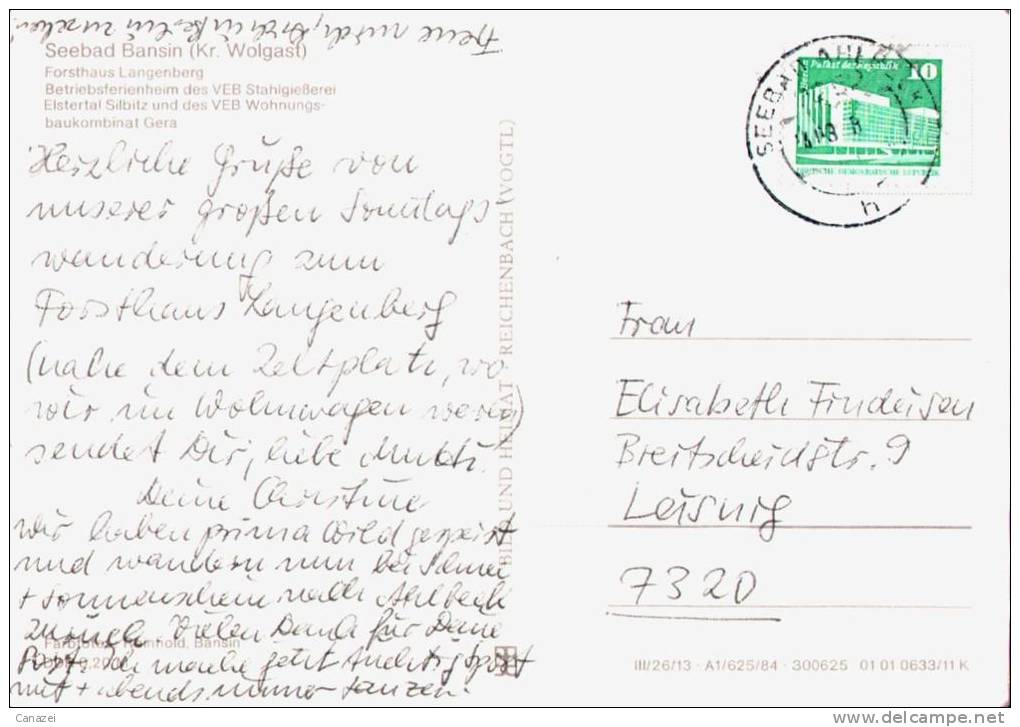 Freue mich, Dich in Berlin zu sehen!
Seebad Bansin (Kr. Wolgast)
Forsthaus Langenberg
Betriebsferienheim des VEB Stahlgießerei
Elstertal Silbitz und des VEB Wohnungs-
baukombinat Gera
Herzliche Grüße von
unserer großen Sonntags-
wanderung zum
Forsthaus Langenberg
(nahe dem Zeltplatz, wo
wir im Wohnwagen waren)
sendet Dir, liebe Mutti
Deine Christine
Wir haben prima Wild gespeist
und wandern nun bei Schnee
+ Sonnenschein nach Ahlbeck
zurück. Vielen Dank für Deine
Post. Ich mache jetzt Nachtsport
mit + abends immer tanzen.
Farbfoto: Reinhold, Bansin
BILD UND HEIMAT REICHENBACH (VOGTL)
SEEBAD AHLBECK
h
Berlin, Palast der Republik
10
DEUTSCHE DEMOKRATISCHE REPUBLIK
Frau
Elisabeth Findeisen
Breitscheidstr. 9
Leisnig
7320
III/26/13 · A1/625/84 · 300625 01 01 0633/11 K
Canazei
www.delcampe.net